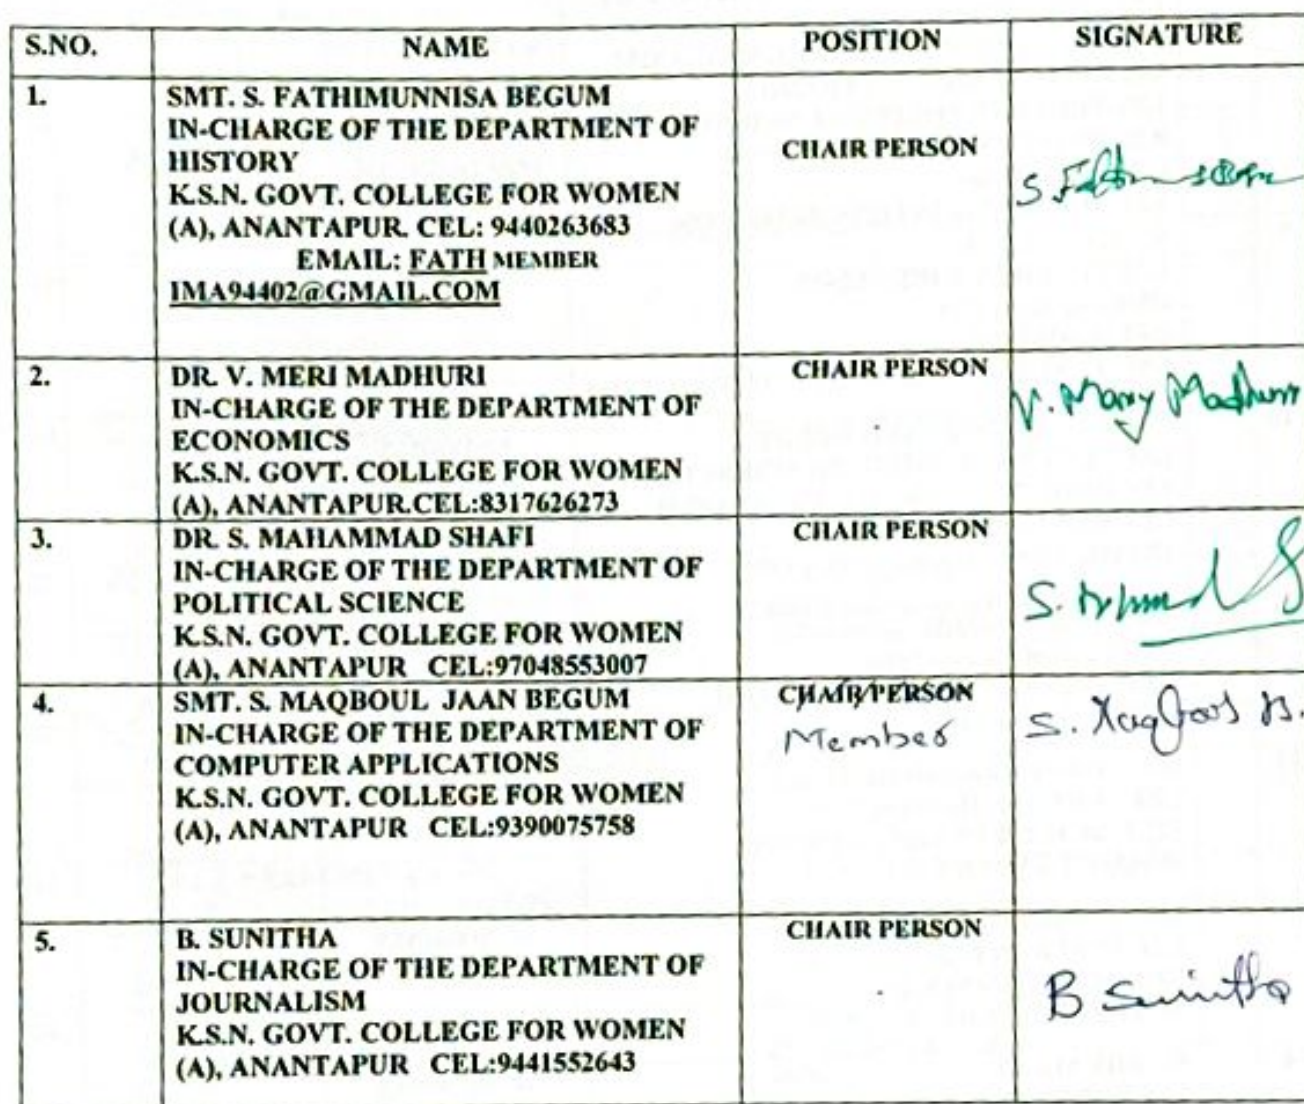 S.NO. NAME POSITION SIGNATURE
1. SMT. S. FATHIMUNNISA BEGUM
IN-CHARGE OF THE DEPARTMENT OF
HISTORY
K.S.N. GOVT. COLLEGE FOR WOMEN
(A), ANANTAPUR. CEL: 9440263683
EMAIL: FATH MEMBER
IMA94402@GMAIL.COM
CHAIR PERSON
S
2. DR. V. MERI MADHURI
IN-CHARGE OF THE DEPARTMENT OF
ECONOMICS
K.S.N. GOVT. COLLEGE FOR WOMEN
(A), ANANTAPUR.CEL:8317626273
CHAIR PERSON
V. Mary Madhuri
3. DR. S. MAHAMMAD SHAFI
IN-CHARGE OF THE DEPARTMENT OF
POLITICAL SCIENCE
K.S.N. GOVT. COLLEGE FOR WOMEN
(A), ANANTAPUR CEL:97048553007
CHAIR PERSON
S.
4. SMT. S. MAQBOUL JAAN BEGUM
IN-CHARGE OF THE DEPARTMENT OF
COMPUTER APPLICATIONS
K.S.N. GOVT. COLLEGE FOR WOMEN
(A), ANANTAPUR CEL:9390075758
CHAIR PERSON
Member
S. B.
5. B. SUNITHA
IN-CHARGE OF THE DEPARTMENT OF
JOURNALISM
K.S.N. GOVT. COLLEGE FOR WOMEN
(A), ANANTAPUR CEL:9441552643
CHAIR PERSON
B Sunitha